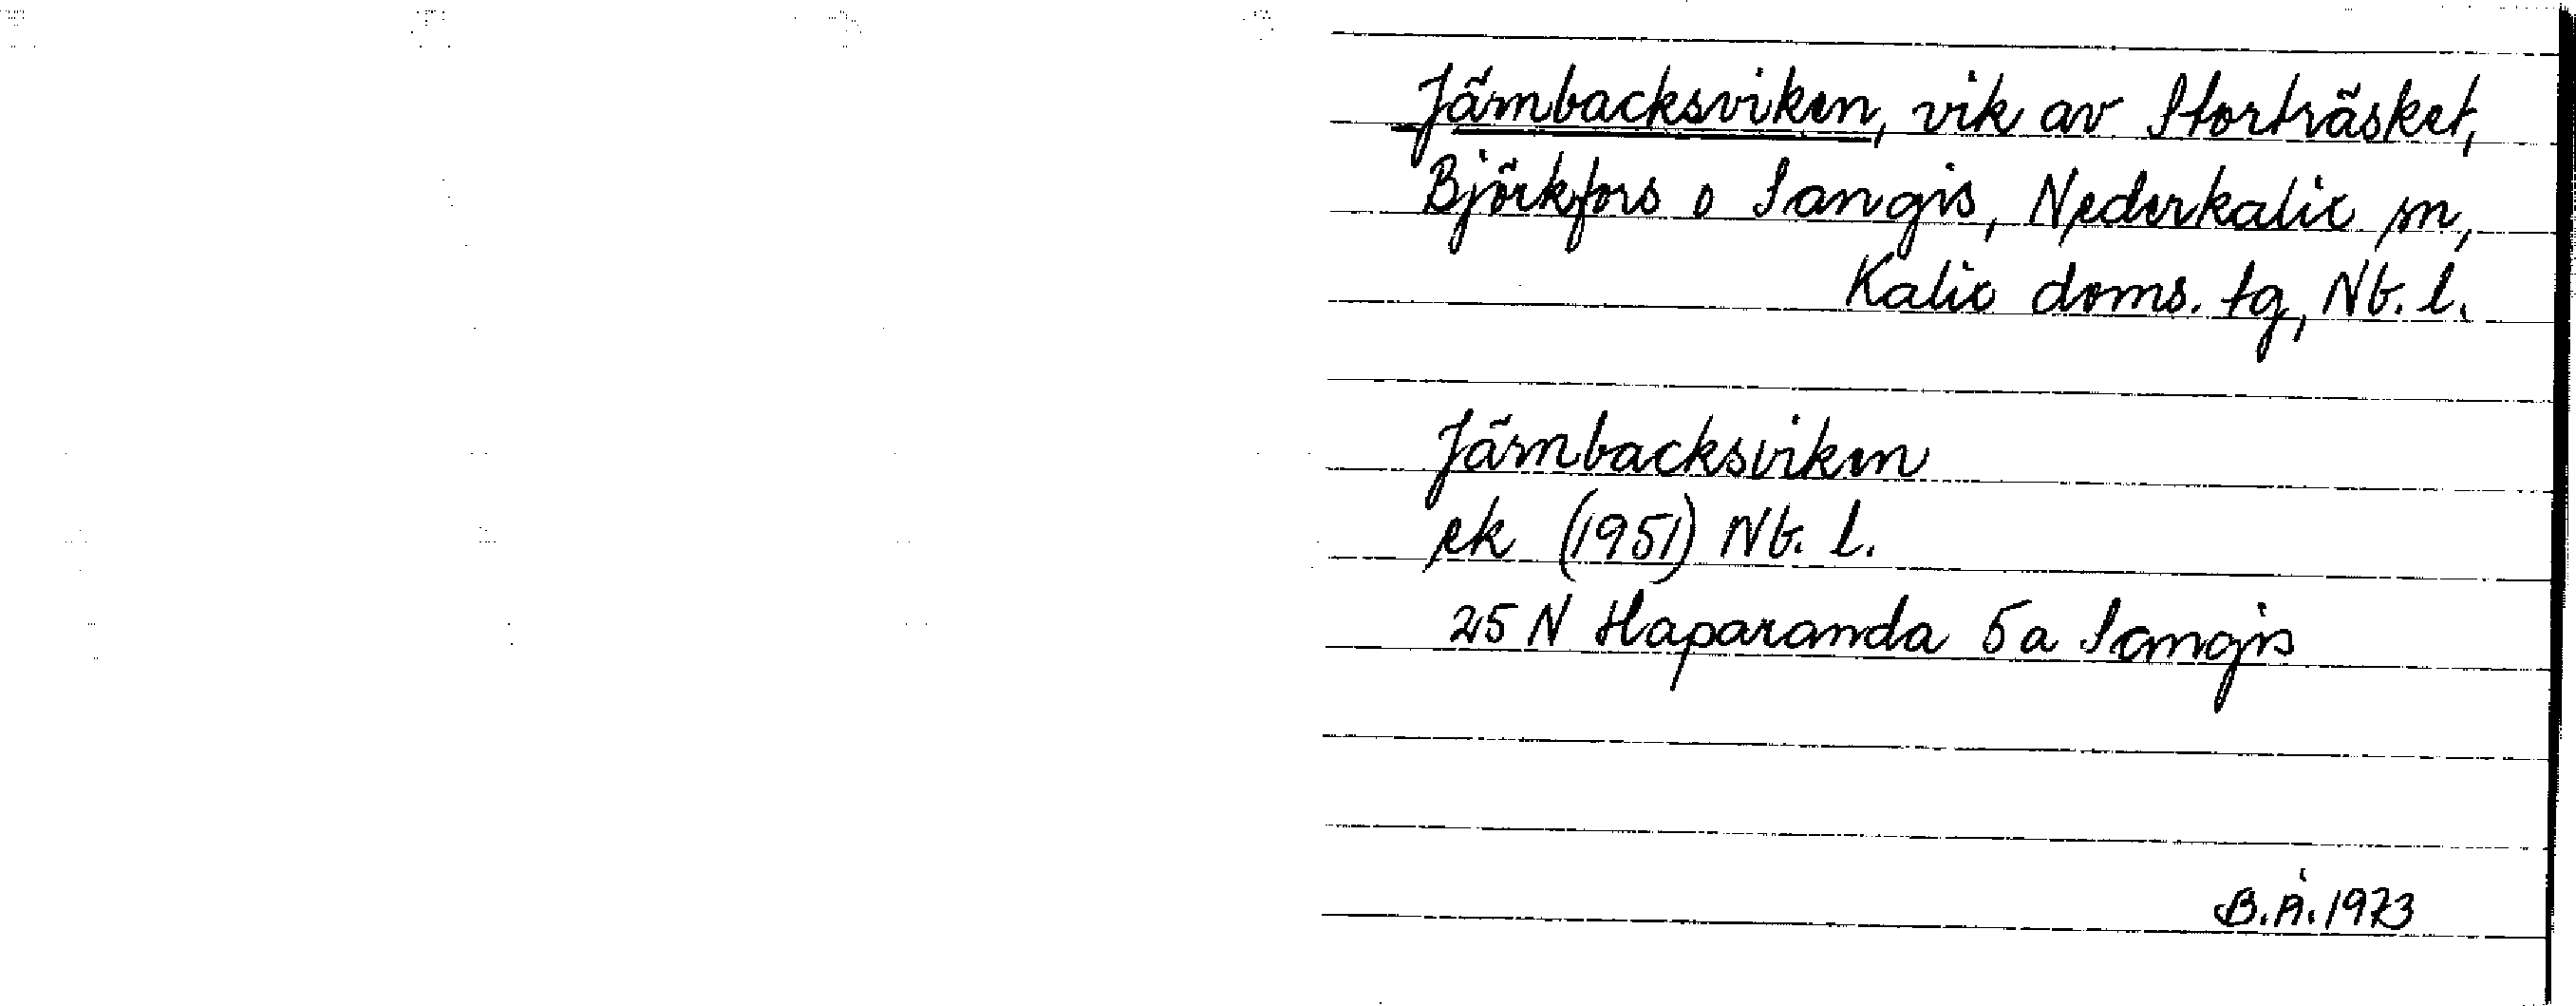 Järnbacksviken, vik av Storträsket,
Björkfors o Sangis, Nederkalix sn,
Kalix doms. tg, Nb. l.
Järnbacksviken
ek (1951) Nb. l.
25 N Haparanda 5a Sangis
B.Å. 1973